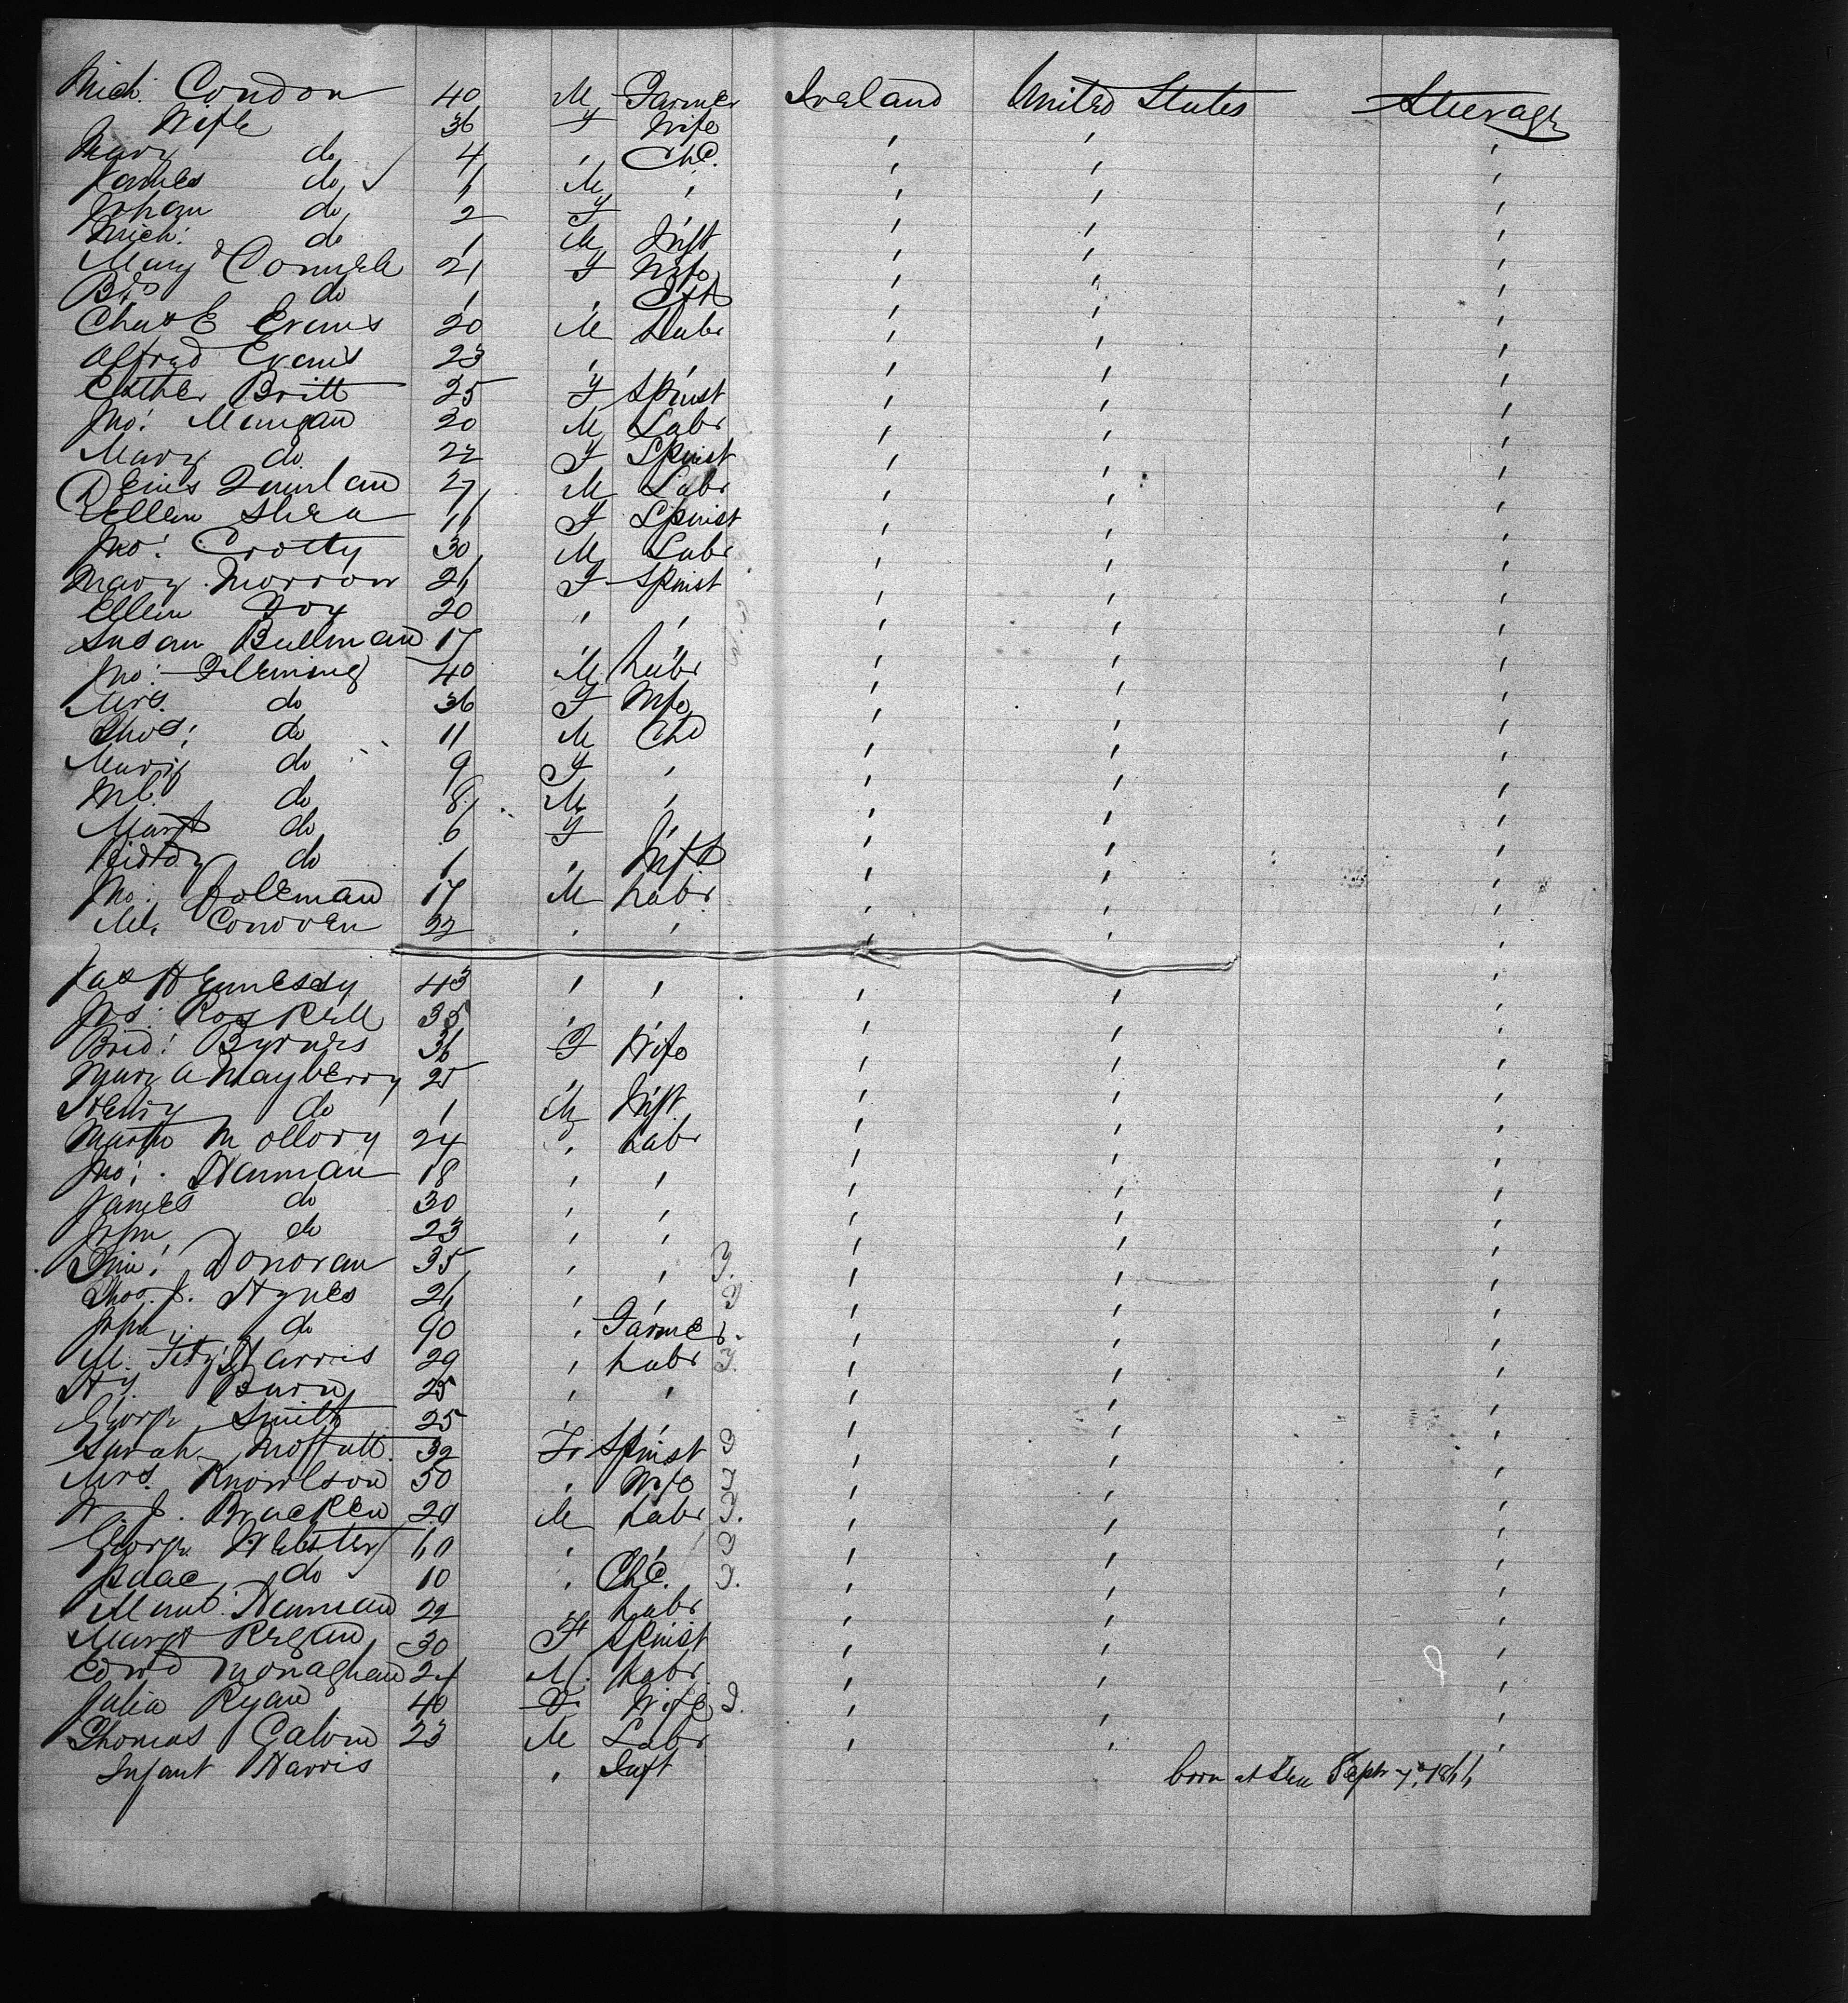 Mich. Condon 40 M Farmer Ireland United States Steerage
Wife 36 F Wife ' ' '
Mary do 4 ' Chd. ' ' '
James do ✓ M ' ' ' '
Johan do 2 F ' ' ' '
Mich. do 1 M Inft ' ' '
Mary 21 F Wife ' ' '
do 1 ' Inft ' ' '
Chas E Evans 20 M Labr ' ' '
Alfred Evans 23 ' ' ' ' '
Esther Britt 25 F Spinst ' ' '
Jno: Mungan 20 M Labr ' ' '
Mary do 22 F Spinst ' ' '
Denis Quinlan 27 M Labr ' ' '
Ellen Shea F Spinst ' ' '
Jno: Crotty 30 M Labr ' ' '
Mary Morrow F Spinst ' ' '
Ellen Foy 20 ' ' ' ' '
Susan Bullman 17 ' ' ' ' '
Jno: Fleming 40 M Labr ' ' '
Mrs. do 36 F Wife ' ' '
Thos: do 11 M Chd ' ' '
Mary do 9 F ' ' ' '
Ml. do 8 M ' ' ' '
Margt do 6 F ' ' ' '
Biddy do 1 ' Inft ' ' '
Jno: Coleman 17 M Labr ' ' '
Ml. Conoven 22 ' ' ' ' '
Jas Hennessy 43 ' ' ' ' '
Jas: Roskell 35 ' ' ' ' '
Brid: Byrnes 36 F Wife ' ' '
Mary A Mayberry 25 ' ' ' ' '
Henry do 1 M Inft ' ' '
Martin Mollory 24 ' Labr ' ' '
Jno: Hannan 18 ' ' ' ' '
James do 30 ' ' ' ' '
John do 23 ' ' ' ' '
Tim: Donovan 35 ' ' ' ' '
Thos. J. Hynes ' ' ' ' '
John do 90 ' Farmer ' ' '
M. FitzHarris 29 ' Labr ' ' '
Hy. Burn 25 ' ' ' ' '
George Smith 25 ' ' ' ' '
Sarah Moffatt 32 F Spinst ' ' '
Mrs. Knowlson 50 ' Wife ' ' '
W. J. Bracken 29 M Labr ' ' '
George Webster 60 ' ' ' ' '
Isaac do 10 ' Chd. ' ' '
Hannan 22 ' Labr ' ' '
Margt Regan 30 F Spinst ' ' '
Edwd Monaghan 24 M Labr ' ' '
Julia Ryan 40 F Wife ' ' '
Thomas Galvin 23 M Labr ' ' '
Infant Harris ' Inft born at Sea Septr 7, 1866